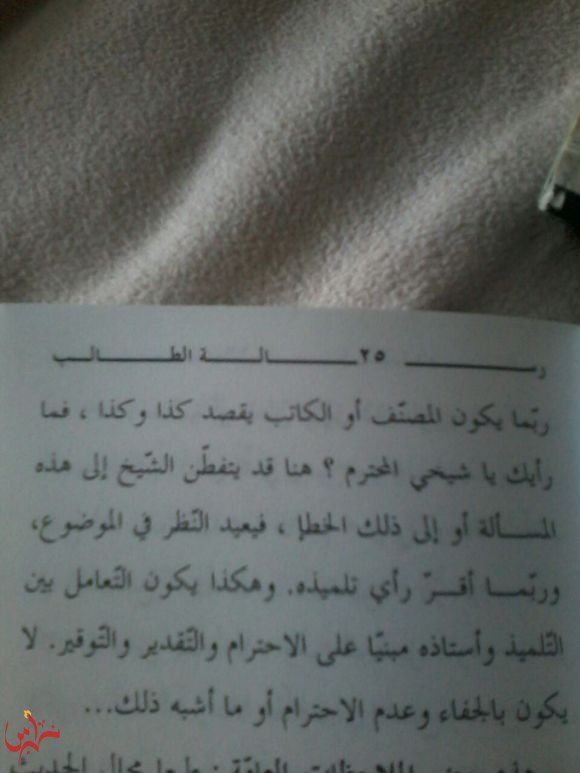 رســــــــالــــــة الطــــــالــــــب ٢٥
ربّما يكون المصنّف أو الكاتب يقصد كذا وكذا ، فما
رأيك يا شيخي المحترم ؟ هنا قد يتفطّن الشّيخ إلى هذه
المســألة أو إلى ذلك الخطإ ، فيعيد النّظر في الموضوع،
وربّمــا أقــرّ رأي تلميذه. وهكذا يكون التّعامل بين
التّلميذ وأستاذه مبنيّا على الاحترام والتّقدير والتّوقير. لا
يكون بالجفاء وعدم الاحترام أو ما أشبه ذلك...